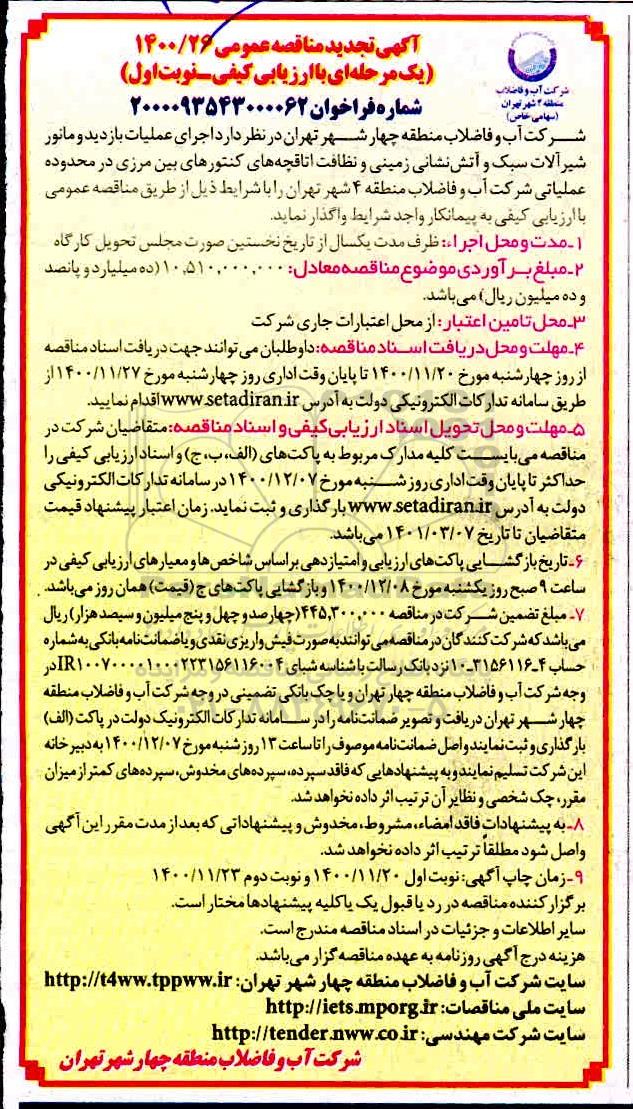 آگهی تجدید مناقصه عمومی ۱۴۰۰/۲۶
(یک مرحله‌ای با ارزیابی کیفی ـ نوبت اول)
شماره فراخوان ۲۰۰۰۰۹۳۵۴۳۰۰۰۰۶۲
شرکت آب و فاضلاب
منطقه ۴ شهر تهران
(سهامی خاص)
شرکت آب و فاضلاب منطقه چهار شهر تهران در نظر دارد اجرای عملیات بازدید و مانور
شیرآلات سبک و آتش‌نشانی زمینی و نظافت اتاقچه‌های کنتورهای بین مرزی در محدوده
عملیاتی شرکت آب و فاضلاب منطقه ۴ شهر تهران را با شرایط ذیل از طریق مناقصه عمومی
با ارزیابی کیفی به پیمانکار واجد شرایط واگذار نماید.
۱ـ مدت و محل اجراء: ظرف مدت یکسال از تاریخ نخستین صورت مجلس تحویل کارگاه
۲ـ مبلغ برآوردی موضوع مناقصه معادل: ۱۰,۵۱۰,۰۰۰,۰۰۰ (ده میلیارد و پانصد
و ده میلیون ریال) می‌باشد.
۳ـ محل تامین اعتبار: از محل اعتبارات جاری شرکت
۴ـ مهلت و محل دریافت اسناد مناقصه: داوطلبان می‌توانند جهت دریافت اسناد مناقصه
از روز چهارشنبه مورخ ۱۴۰۰/۱۱/۲۰ تا پایان وقت اداری روز چهارشنبه مورخ ۱۴۰۰/۱۱/۲۷ از
طریق سامانه تدارکات الکترونیکی دولت به آدرس www.setadiran.ir اقدام نمایید.
۵ـ مهلت و محل تحویل اسناد ارزیابی کیفی و اسناد مناقصه: متقاضیان شرکت در
مناقصه می‌بایست کلیه مدارک مربوط به پاکت‌های (الف، ب، ج) و اسناد ارزیابی کیفی را
حداکثر تا پایان وقت اداری روز شنبه مورخ ۱۴۰۰/۱۲/۰۷ در سامانه تدارکات الکترونیکی
دولت به آدرس www.setadiran.ir بارگذاری و ثبت نماید. زمان اعتبار پیشنهاد قیمت
متقاضیان تا تاریخ ۱۴۰۱/۰۳/۰۷ می‌باشد.
۶ـ تاریخ بازگشایی پاکت‌های ارزیابی و امتیازدهی بر اساس شاخص‌ها و معیارهای ارزیابی کیفی در
ساعت ۹ صبح روز یکشنبه مورخ ۱۴۰۰/۱۲/۰۸ و بازگشایی پاکت‌های ج (قیمت) همان روز می‌باشد.
۷ـ مبلغ تضمین شرکت در مناقصه ۴۴۵,۳۰۰,۰۰۰ (چهارصد و چهل و پنج میلیون و سیصد هزار) ریال
می‌باشد که شرکت کنندگان در مناقصه می‌توانند به صورت فیش واریزی نقدی و یا ضمانت‌نامه بانکی به شماره
حساب ۴ـ۳۱۵۶۱۱۶ـ۱۰ نزد بانک رسالت با شناسه شبای IR۱۰۰۷۰۰۰۰۱۰۰۰۲۲۳۱۵۶۱۱۶۰۰۴ در
وجه شرکت آب و فاضلاب منطقه چهار تهران و یا چک بانکی تضمینی در وجه شرکت آب و فاضلاب منطقه
چهار شهر تهران دریافت و تصویر ضمانت‌نامه را در سامانه تدارکات الکترونیک دولت در پاکت (الف)
بارگذاری و ثبت نمایند و اصل ضمانت‌نامه موصوف را تا ساعت ۱۳ روز شنبه مورخ ۱۴۰۰/۱۲/۰۷ به دبیرخانه
این شرکت تسلیم نمایند و به پیشنهادهایی که فاقد سپرده، سپرده‌های مخدوش، سپرده‌های کمتر از میزان
مقرر، چک شخصی و نظایر آن ترتیب اثر داده نخواهد شد.
۸ـ به پیشنهادات فاقد امضاء، مشروط، مخدوش و پیشنهاداتی که بعد از مدت مقرر این آگهی
واصل شود مطلقاً ترتیب اثر داده نخواهد شد.
۹ـ زمان چاپ آگهی: نوبت اول ۱۴۰۰/۱۱/۲۰ و نوبت دوم ۱۴۰۰/۱۱/۲۳
برگزار کننده مناقصه در رد یا قبول یک یا کلیه پیشنهادها مختار است.
سایر اطلاعات و جزئیات در اسناد مناقصه مندرج است.
هزینه درج آگهی روزنامه به عهده مناقصه گزار می‌باشد.
سایت شرکت آب و فاضلاب منطقه چهار شهر تهران: http://t4ww.tppww.ir
سایت ملی مناقصات: http://iets.mporg.ir
سایت شرکت مهندسی: http://tender.nww.co.ir
شرکت آب و فاضلاب منطقه چهار شهر تهران